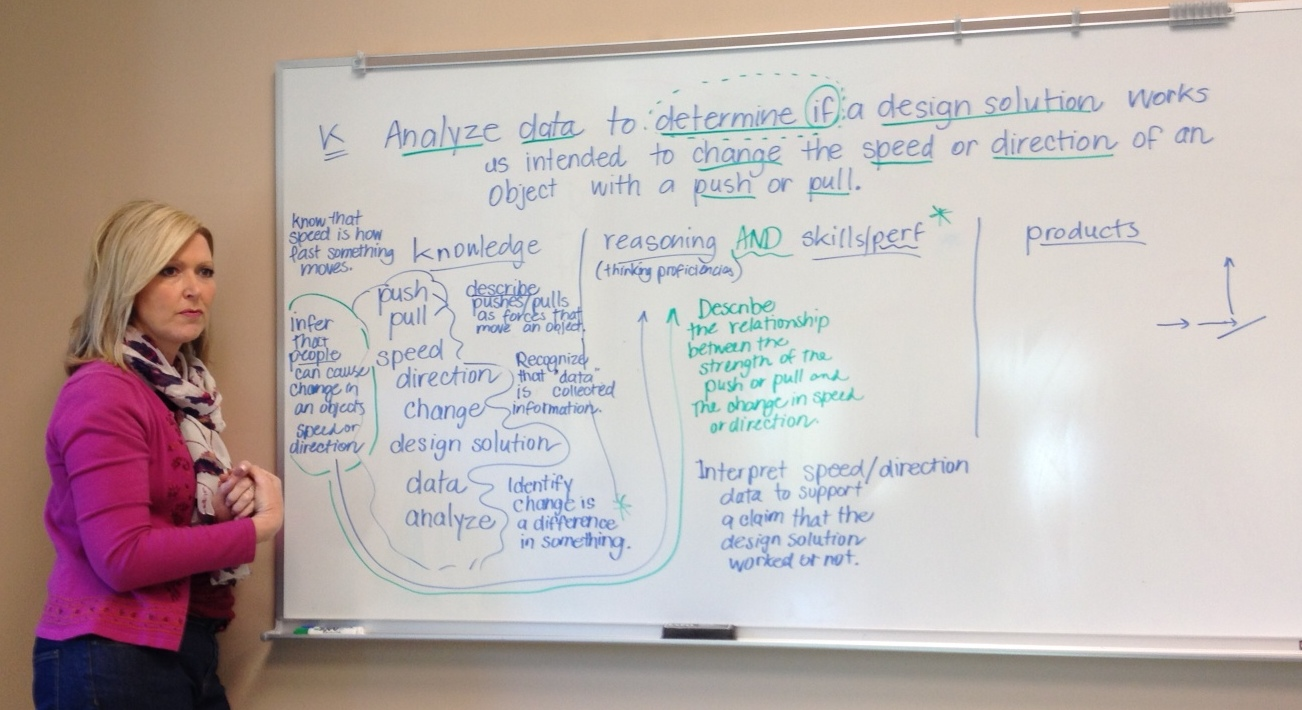 K Analyze data to determine if a design solution works
as intended to change the speed or direction of an
object with a push or pull.
know that
speed is how
fast something
moves.
knowledge
push
pull
speed
direction
change
design solution
data
analyze
infer
that
people
can cause
change in
an objects
speed or
direction
describe
pushes/pulls
as forces that
move an object.
Recognize
that "data"
is collected
information.
Identify
change is
a difference
in something.
reasoning AND skills/perf *
(thinking proficiencies)
Describe
the relationship
between the
strength of the
push or pull and
the change in speed
or direction.
Interpret speed/direction
data to support
a claim that the
design solution
worked or not.
products